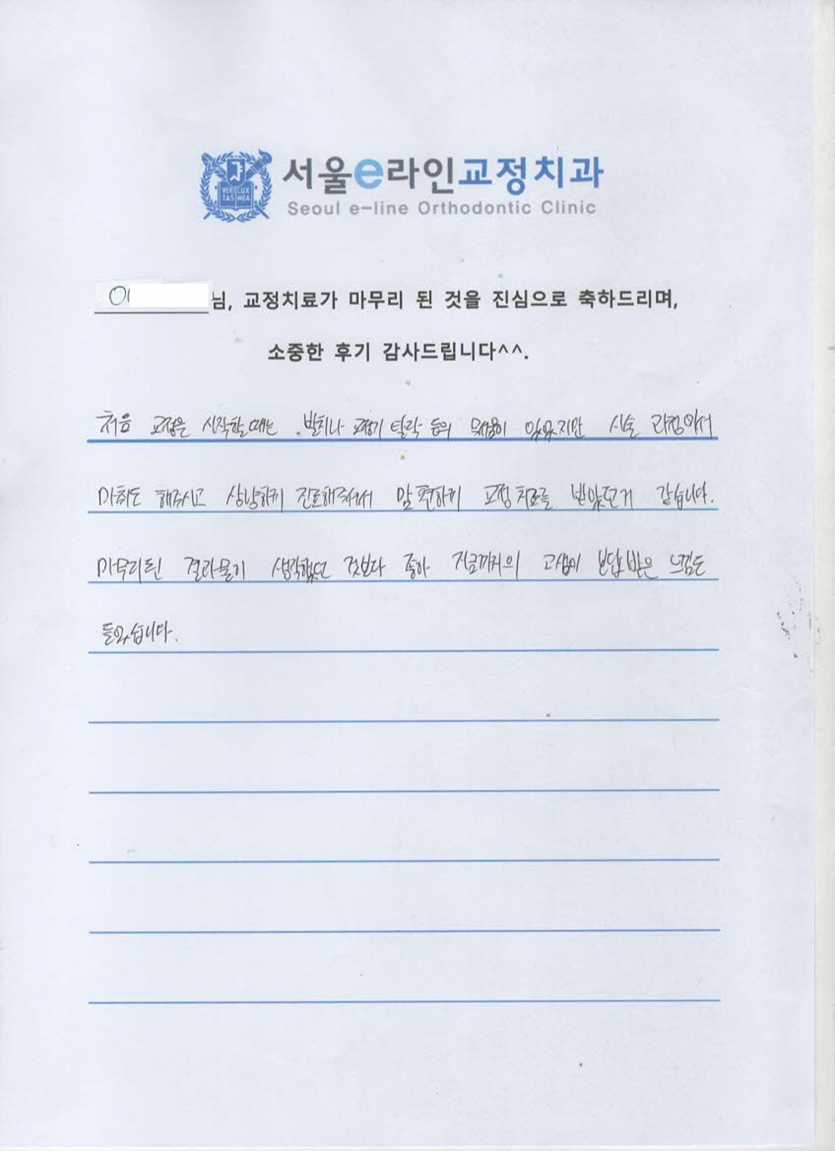 서울e라인교정치과
Seoul e-line Orthodontic Clinic
VERI LUX
TAS MEA
이 님, 교정치료가 마무리 된 것을 진심으로 축하드리며,
소중한 후기 감사드립니다^^.
처음 교정을 시작할때는 발치나 교정기 탈락 등의 무서움이 있었지만 시술 과정에서
마취도 해주시고 상냥하게 진료해주셔서 맘 편하게 교정 치료를 받았던거 같습니다.
마무리된 결과물이 생각했던 것보다 좋아 지금까지의 고생이 보답 받은 느낌도
들었습니다.